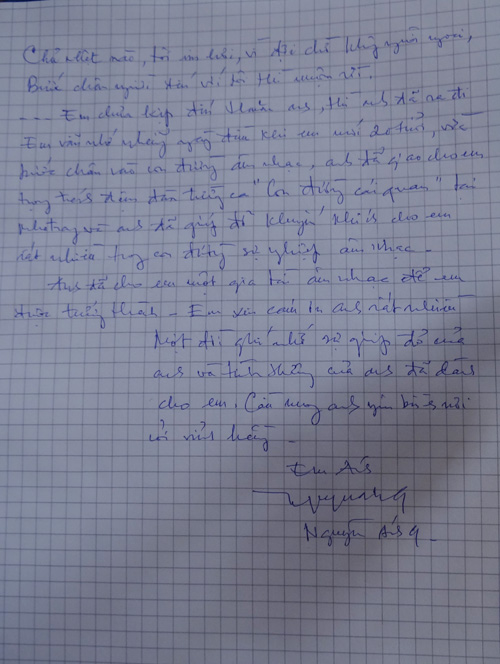 Chủ nhật nào, tôi im hơi, vì đợi chờ không nguôi ngoai,
Bước chân người đến với tôi thì muộn rồi
---- Em chưa kịp đến thăm anh, thì anh đã ra đi
Em vẫn nhớ những ngày đầu khi em mới 20 tuổi, vừa
bước chân vào con đường âm nhạc, anh đã giao cho em
trọng trách đảm tiếng ca "Con đường cái quan" tại
và anh đã giúp đỡ khuyến khích cho em
rất nhiều trong con đường sự nghiệp âm nhạc -
Anh đã cho em một gia tài âm nhạc để em
được trưởng thành - Em xin cám ơn anh rất nhiều
Một đời ghi nhớ sự giúp đỡ của
anh và tình thương của anh đã dành
cho em. Cầu mong anh yên bình nơi
cõi vĩnh hằng -
Em Ánh
Nguyễn Ánh 9 -